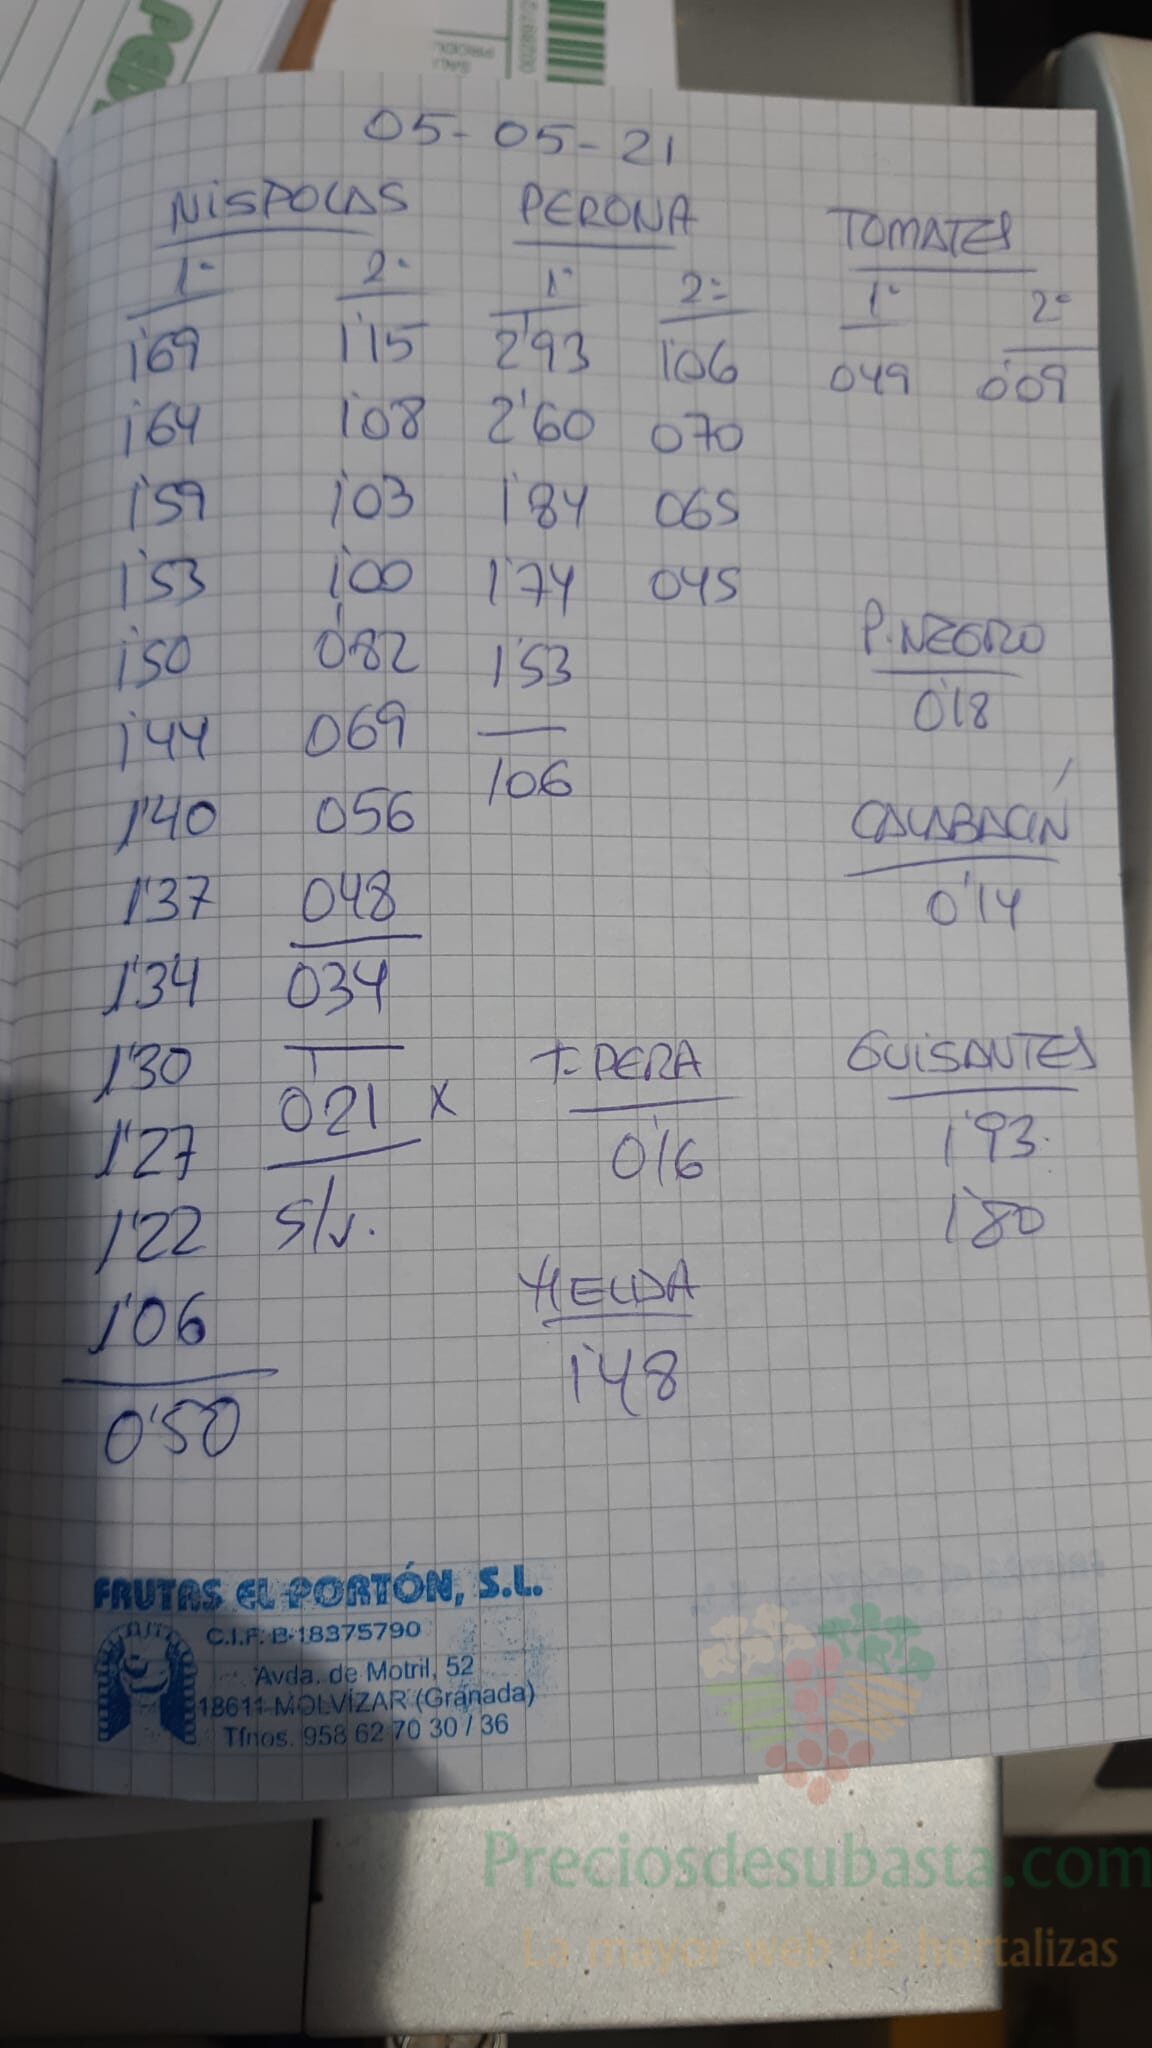 05-05-21
NISPOLAS PERONA TOMATES
1ª 2ª 1ª 2ª 1ª 2ª
1'69 1'15 2'93 1'06 049 0'09
1'64 1'08 2'60 070
1'59 1'03 1'84 065
1'53 1'00 1'74 045
1'50 0'82 1'53
1'44 069 106
1'40 056
1'37 048
1'34 034
1'30 021 x
1'27 S/v.
1'22
1'06
0'50
P. NEGRO
0'18
CALABACÍN
0'14
T. PERA
0'16
GUISANTES
1'93
1'80
HELDA
1'48
FRUTAS EL PORTÓN, S.L.
C.I.F. B-18375790
Avda. de Motril, 52
18611 MOLVÍZAR (Granada)
Tfnos. 958 62 70 30 / 36
Preciosdesubasta.com
La mayor web de hortalizas